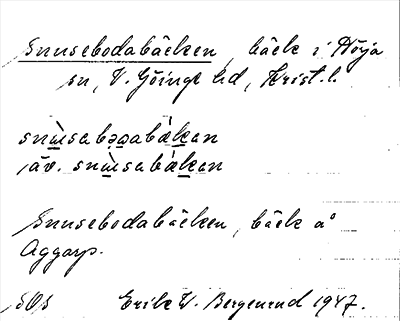 Snusebodabäcken, bäck i Rörja
sn, V. Göinge hd, Krist. l.
snɯ̀sabǝgabä́kan
äv. snɯ̀sabä́kan
Snusebodabäcken, bäck å
Aggarp.
SOs Erik W. Bergenrud 1947.